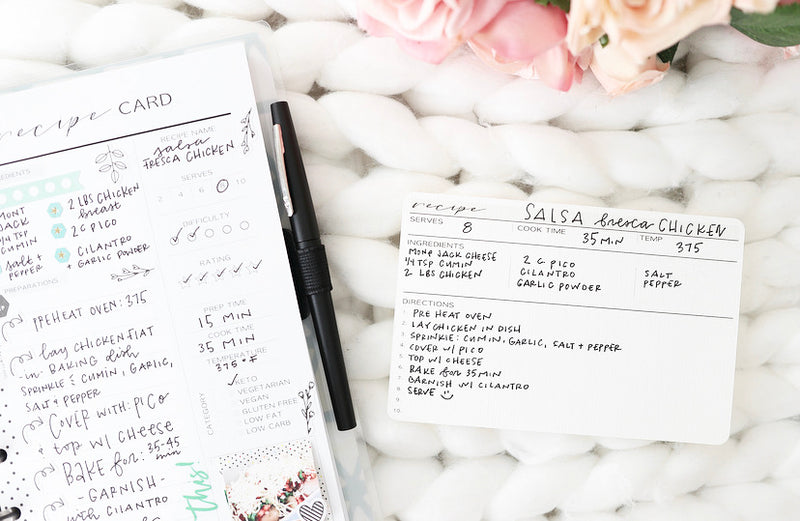 recipe CARD
RECIPE NAME
salsa
FRESCA CHICKEN
SERVES
2 4 6 8 10
DIFFICULTY
RATING
PREP TIME
15 MIN
COOK TIME
35 MIN
TEMPERATURE
375°F
CATEGORY
KETO
VEGETARIAN
VEGAN
GLUTEN FREE
LOW FAT
LOW CARB
MONT
JACK
1/4 TSP
CUMIN
salt +
PEPPER
2 LBS CHICKEN
breast
2 C PICO
CILANTRO
+ GARLIC POWDER
PREPARATIONS
PREHEAT OVEN: 375
lay CHICKEN FLAT
in BAKING dish
SPRINKLE : CUMIN, GARLIC,
SALT + PEPPER
COVER WITH: PICO
+ top w/ CHEESE
BAKE for: 35-45
min
-GARNISH-
with CILANTRO
this!
recipe SALSA fresca CHICKEN
SERVES 8 COOK TIME 35 MIN TEMP 375
INGREDIENTS
MONT JACK CHEESE
1/4 TSP CUMIN
2 LBS CHICKEN
2 C PICO
CILANTRO
GARLIC POWDER
SALT
PEPPER
DIRECTIONS
1. PRE HEAT OVEN
2. LAY CHICKEN IN DISH
3. SPRINKLE: CUMIN, GARLIC, SALT + PEPPER
4. COVER w/ PICO
5. TOP w/ CHEESE
6. BAKE for 35 MIN
7. GARNISH w/ CILANTRO
8. SERVE
9.
10.